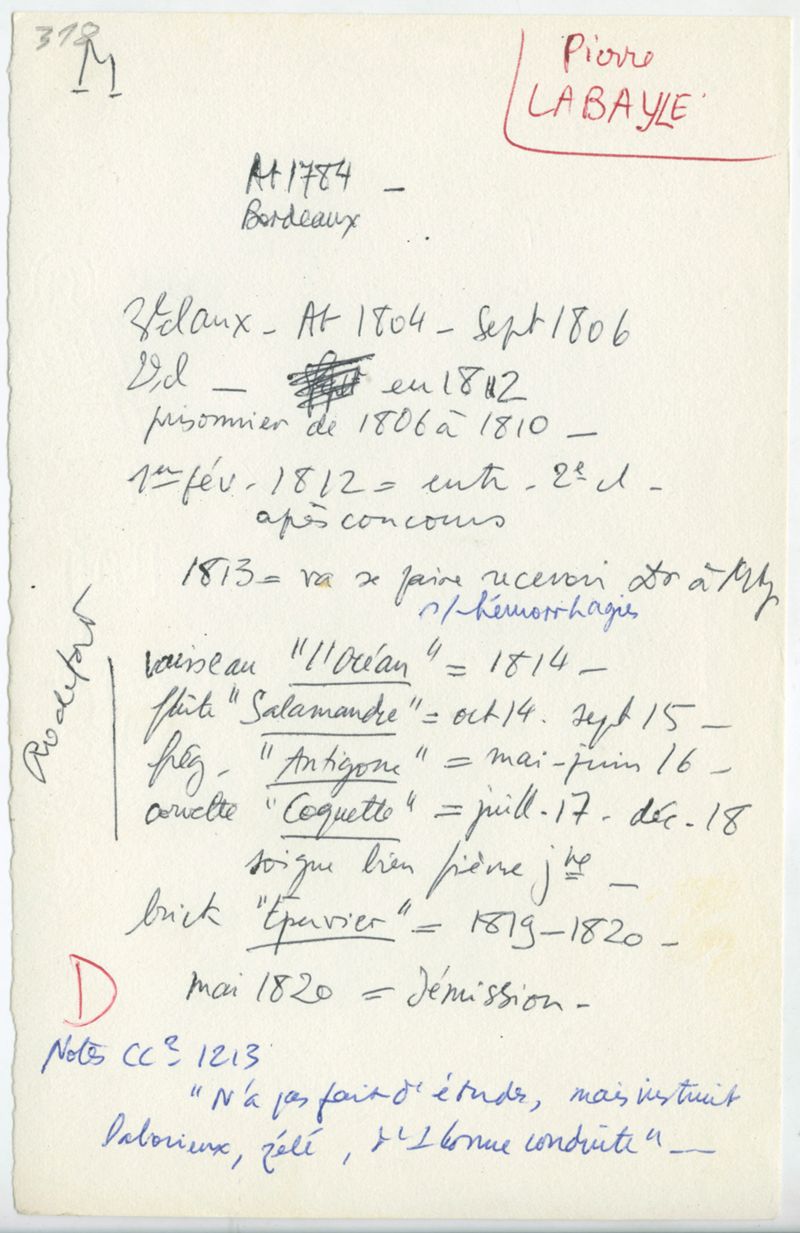 318
M
Pierre
LABAYLE
At 1784 —
Bordeaux
3e cl aux - At 1804 - Sept 1806
2e cl — en 1812
prisonnier de 1806 à 1810 —
1er fév. 1812 = entr. 2e cl -
après concours
1813 = va se faire recevoir Dr à Mtp
s/ hémorrhagies
Rochefort
vaisseau "l'Océan" = 1814 -
flûte "Salamandre" = oct 14. sept 15 -
frég. "Antigone" = mai-juin 16 -
corvette "Coquette" = juill. 17. déc. 18
soigne bien fièvre jne —
brick "Epervier" = 1819-1820 -
D
mai 1820 = démission -
Notes CC2 1213
"N'a pas fait d'études, mais instruit
laborieux, zélé, d'1 bonne conduite" —